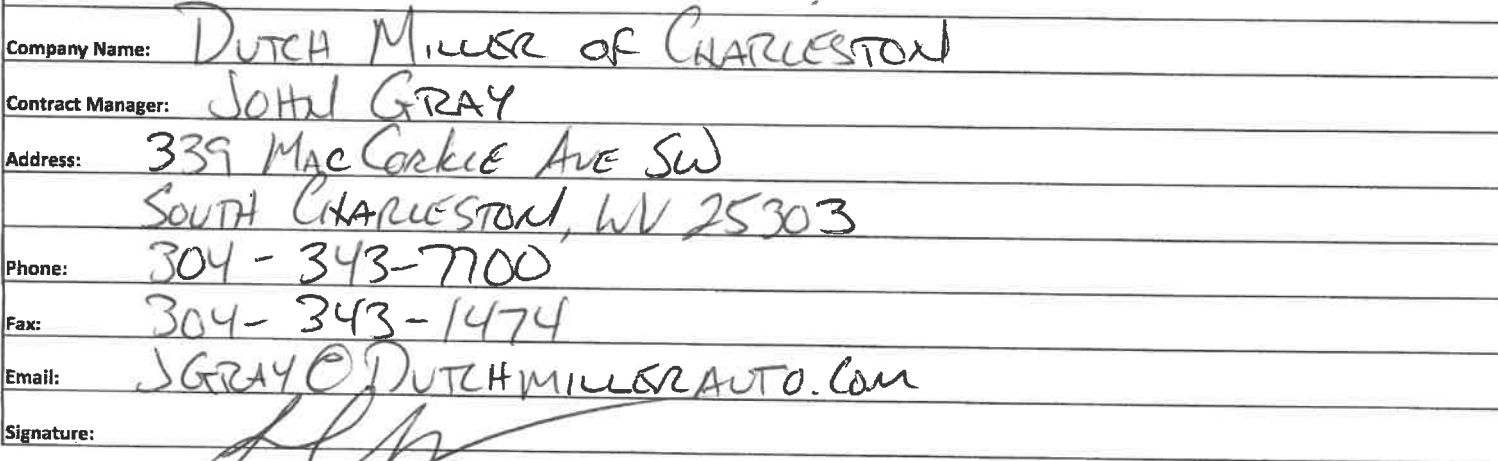 Company Name: DUTCH MILLER OF CHARLESTON
Contract Manager: JOHN GRAY
Address: 339 MACCORKLE AVE SW
SOUTH CHARLESTON, WV 25303
Phone: 304-343-7700
Fax: 304-343-1474
Email: JGRAY@DUTCHMILLERAUTO.COM
Signature: